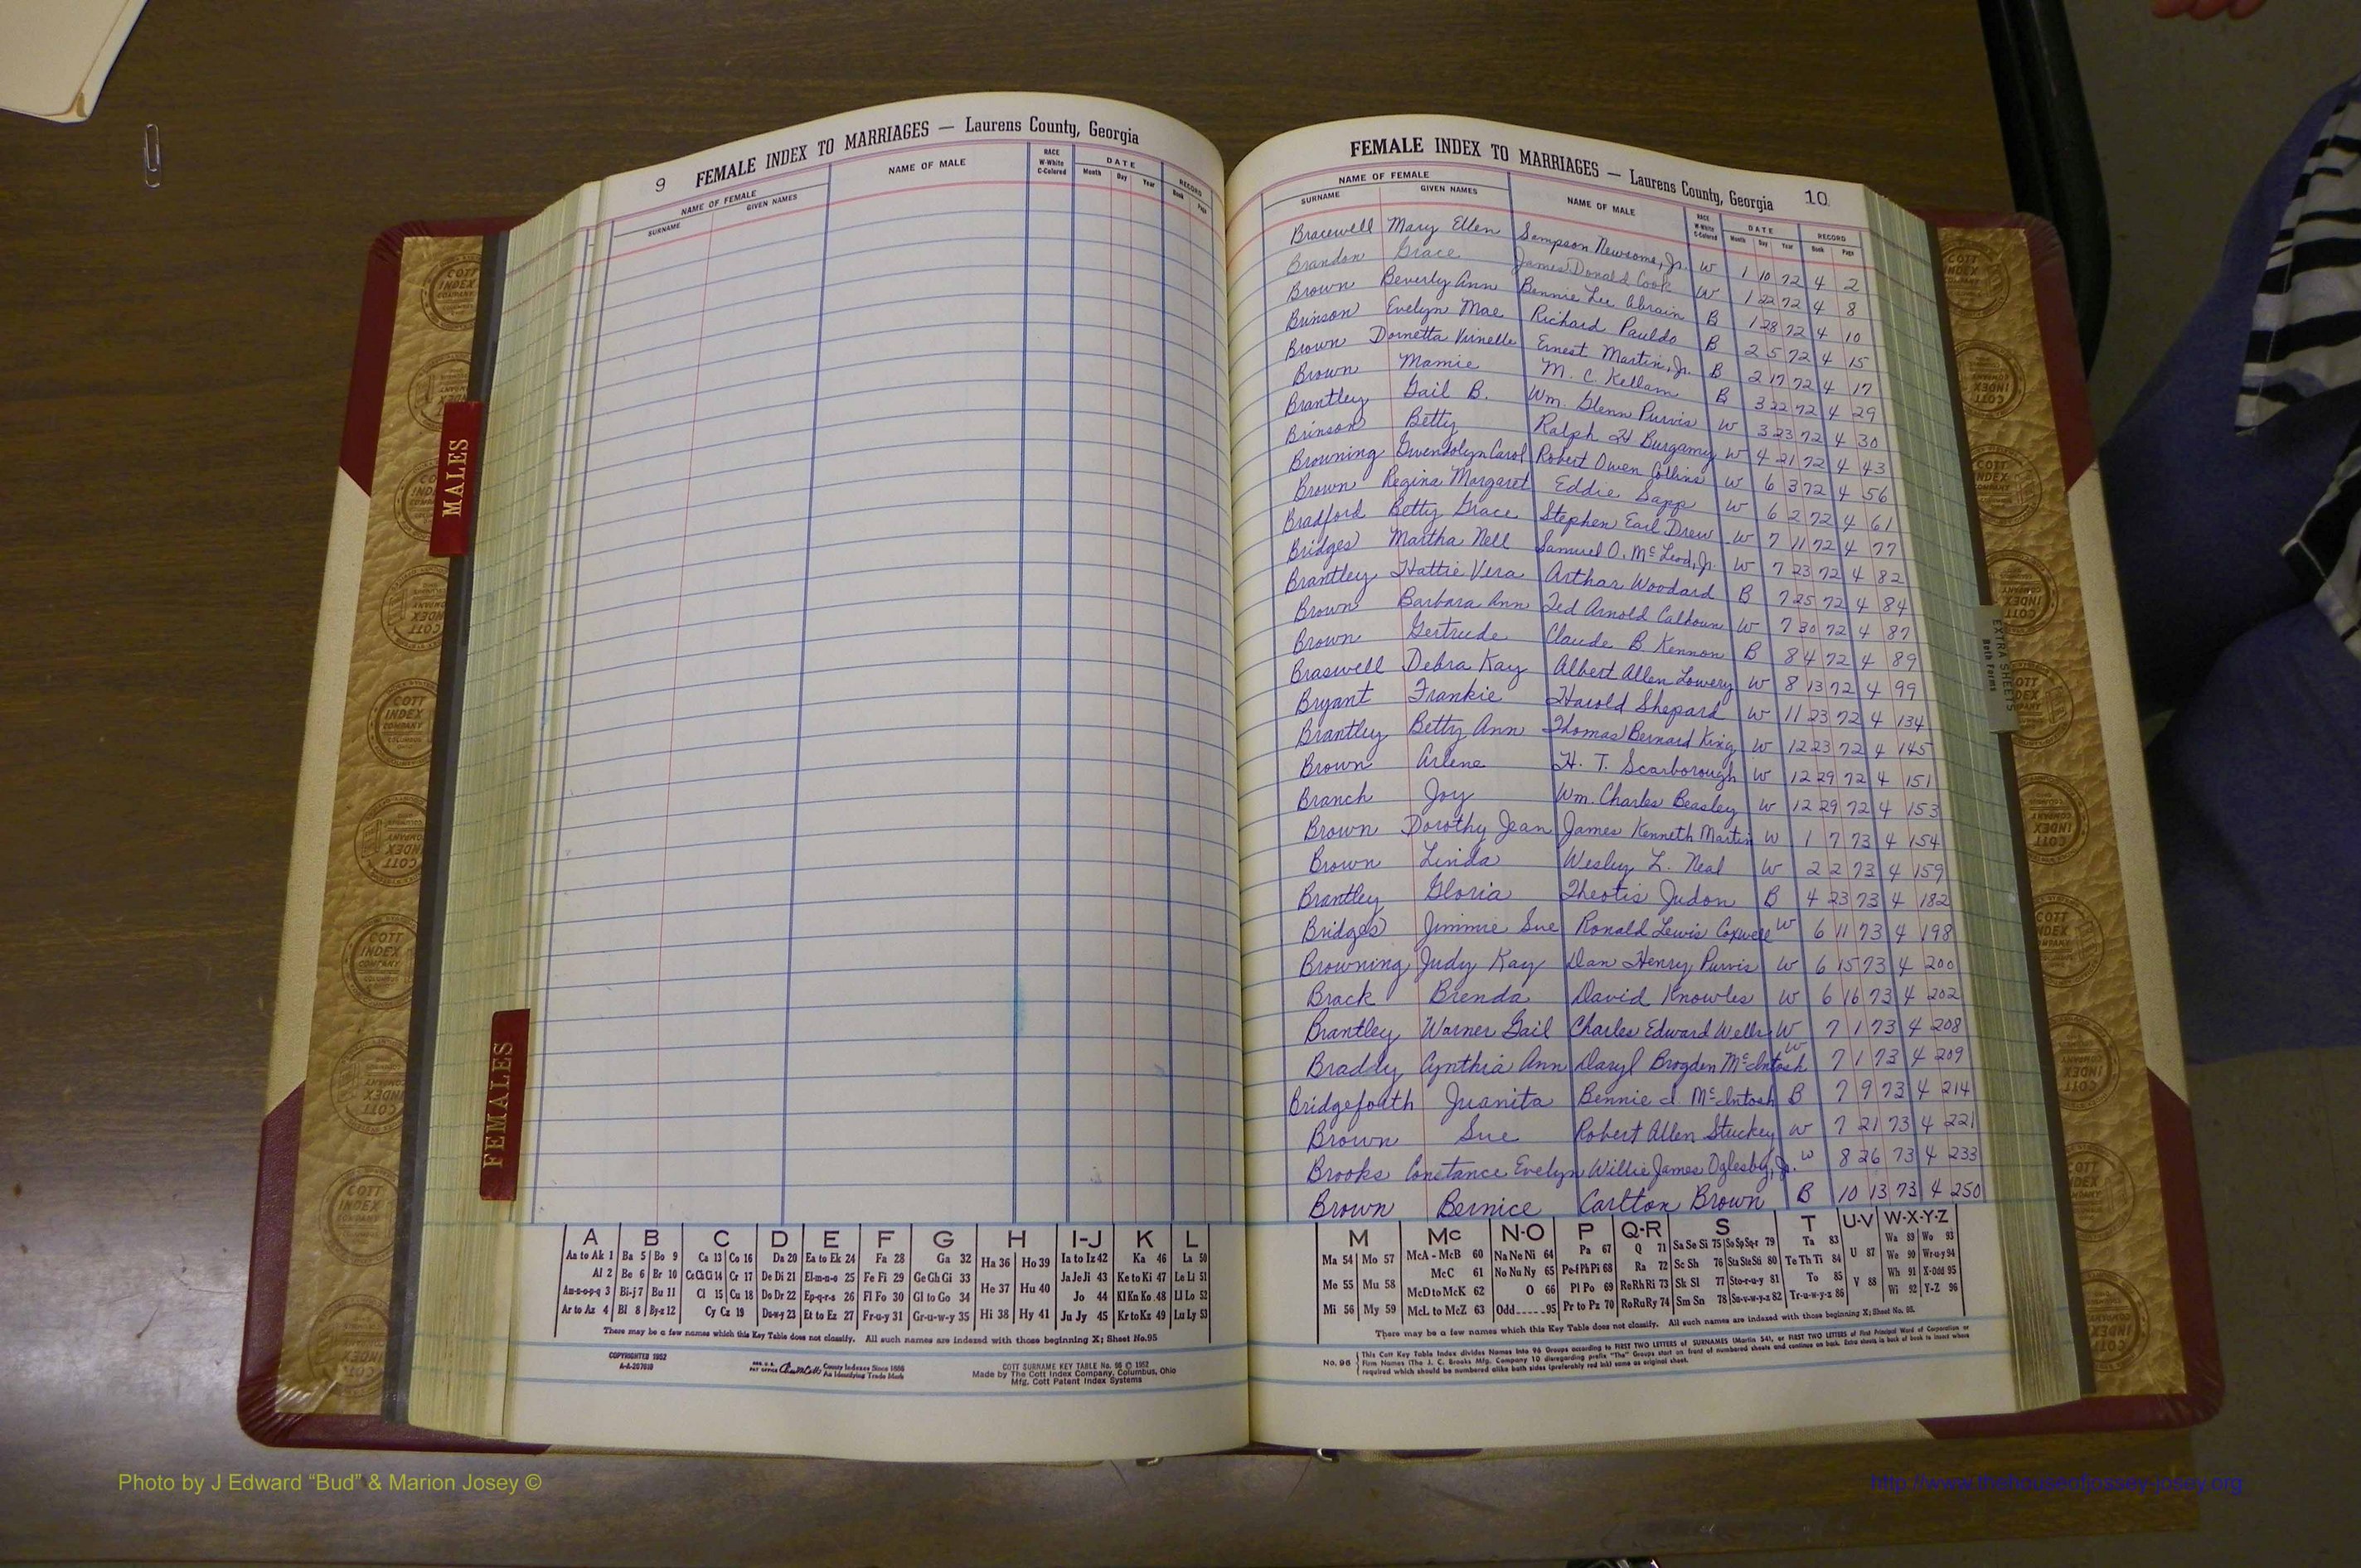 9 FEMALE INDEX TO MARRIAGES — Laurens County, Georgia
NAME OF FEMALE NAME OF MALE RACE W-White C-Colored DATE RECORD
SURNAME GIVEN NAMES Month Day Year Book Page
FEMALE INDEX TO MARRIAGES — Laurens County, Georgia 10
NAME OF FEMALE NAME OF MALE RACE W-White C-Colored DATE RECORD
SURNAME GIVEN NAMES Month Day Year Book Page
Bracewell Mary Ellen Sampson Newsome, Jr. W 1 10 72 4 2
Brandon Grace James Donald Cook W 1 22 72 4 8
Brown Beverly Ann Bennie Lee B 1 28 72 4 10
Brinson Evelyn Mae Richard Pauldo B 2 5 72 4 15
Brown Dornetta Ernest Martin, Jr. B 2 17 72 4 17
Brown Mamie M. C. Kellam B 3 22 72 4 29
Brantley Gail B. Wm. Glenn Purvis W 3 23 72 4 30
Brinson Betty Ralph H Burgamy W 4 21 72 4 43
Browning Gwendolyn Carol Robert Owen Collins W 6 3 72 4 56
Brown Regina Margaret Eddie Sapp W 6 2 72 4 61
Bradford Betty Grace Stephen Earl Drew W 7 11 72 4 77
Bridges Martha Nell Samuel O. McLeod, Jr. W 7 23 72 4 82
Brantley Hattie Vera Arthur Woodard B 7 25 72 4 84
Brown Barbara Ann Ted Arnold Calhoun W 7 30 72 4 87
Brown Gertrude Claude B Kennon B 8 4 72 4 89
Braswell Debra Kay Albert Allen Lowery W 8 13 72 4 99
Bryant Frankie Harold Shepard W 11 23 72 4 134
Brantley Betty Ann Thomas Bernard King W 12 23 72 4 145
Brown Arlene H. T. Scarborough W 12 29 72 4 151
Branch Joy Wm. Charles Beasley W 12 29 72 4 153
Brown Dorothy Jean James Kenneth Martin W 1 7 73 4 154
Brown Linda Wesley L. Neal W 2 2 73 4 159
Brantley Gloria Theotis Judon B 4 23 73 4 182
Bridges Jimmie Sue Ronald Lewis Coxwell W 6 11 73 4 198
Browning Judy Kay Dan Henry Purvis W 6 15 73 4 200
Brack Brenda David Knowles W 6 16 73 4 202
Brantley Warner Gail Charles Edward Wells W 7 1 73 4 208
Braddy Cynthia Ann Daryl Brogden McIntosh W 7 1 73 4 209
Bridgeforth Juanita Bennie J. McIntosh B 7 9 73 4 214
Brown Sue Robert Allen Stuckey W 7 21 73 4 221
Brooks Constance Evelyn Willie James Oglesby, Jr. W 8 26 73 4 233
Brown Bernice Carlton Brown B 10 13 73 4 250
MALES
FEMALES
EXTRA SHEETS
Both Forms
COTT INDEX COMPANY
A B C D E F G H I-J K L
Aa to Ak 1 Ba 5 Bo 9 Ca 13 Co 16 Da 20 Ea to Ek 24 Fa 28 Ga 32 Ha 36 Ho 39 Ia to Iz 42 Ka 46 La 50
Al 2 Be 6 Br 10 Ce Ch Ci 14 Cr 17 De Di 21 El-m-n-o 25 Fe Fi 29 Ge Gh Gi 33 Ja Je Ji 43 Ke to Ki 47 Le Li 51
Am-n-o-p-q 3 Bi-j 7 Bu 11 Cl 15 Cu 18 Do Dr 22 Ep-q-r-s 26 Fl Fo 30 Gl to Go 34 He 37 Hu 40 Jo 44 Kl Kn Ko 48 Ll Lo 52
Ar to Az 4 Bl 8 By-z 12 Cy Cz 19 Du-w-y 23 Et to Ez 27 Fr-u-y 31 Gr-u-w-y 35 Hi 38 Hy 41 Ju Jy 45 Kr to Kz 49 Lu Ly 53
There may be a few names which this Key Table does not classify. All such names are indexed with those beginning X; Sheet No. 95
COPYRIGHTED 1952
County Indexes Since 1888
An Identifying Trade Mark
COTT SURNAME KEY TABLE No. 96 © 1952
Made by The Cott Index Company, Columbus, Ohio
Mfg. Cott Patent Index Systems
M Mc N-O P Q-R S T U-V W-X-Y-Z
Ma 54 Mo 57 McA - McB 60 Na Ne Ni 64 Pa 67 Q 71 Sa Se Si 75 So Sp Sq-r 79 Ta 83 U 87 Wa 89 Wo 93
McC 61 No Nu Ny 65 Pe-f Ph Pi 68 Ra 72 Sc Sh 76 Sta Ste Sti 80 Te Th Ti 84 We 90 Wr-u-y 94
Me 55 Mu 58 McD to McK 62 O 66 Pl Po 69 Re Rh Ri 73 Sk Sl 77 Sto-r-u-y 81 To 85 V 88 Wh 91 X-Odd 95
Mi 56 My 59 McL to McZ 63 Odd 95 Pr to Pz 70 Ro Ru Ry 74 Sm Sn 78 Su-v-w-y-z 82 Tr-u-w-y-z 86 Wi 92 Y-Z 96
There may be a few names which this Key Table does not classify. All such names are indexed with those beginning X; Sheet No. 95.
No. 96 This Cott Key Table Index divides Names into 96 Groups according to FIRST TWO LETTERS of SURNAMES (Martin 54), or FIRST TWO LETTERS of First Principal Word of Corporation or
Firm Names (The J. C. Brooks Mfg. Company 10 disregarding prefix "The") Groups start on front of numbered sheets and continue on back. Extra sheets in back of book to insert where
required which should be numbered alike both sides (preferably red ink) same as original sheet.
Photo by J Edward “Bud” & Marion Josey ©
http://www.thehouseofjossey-josey.org